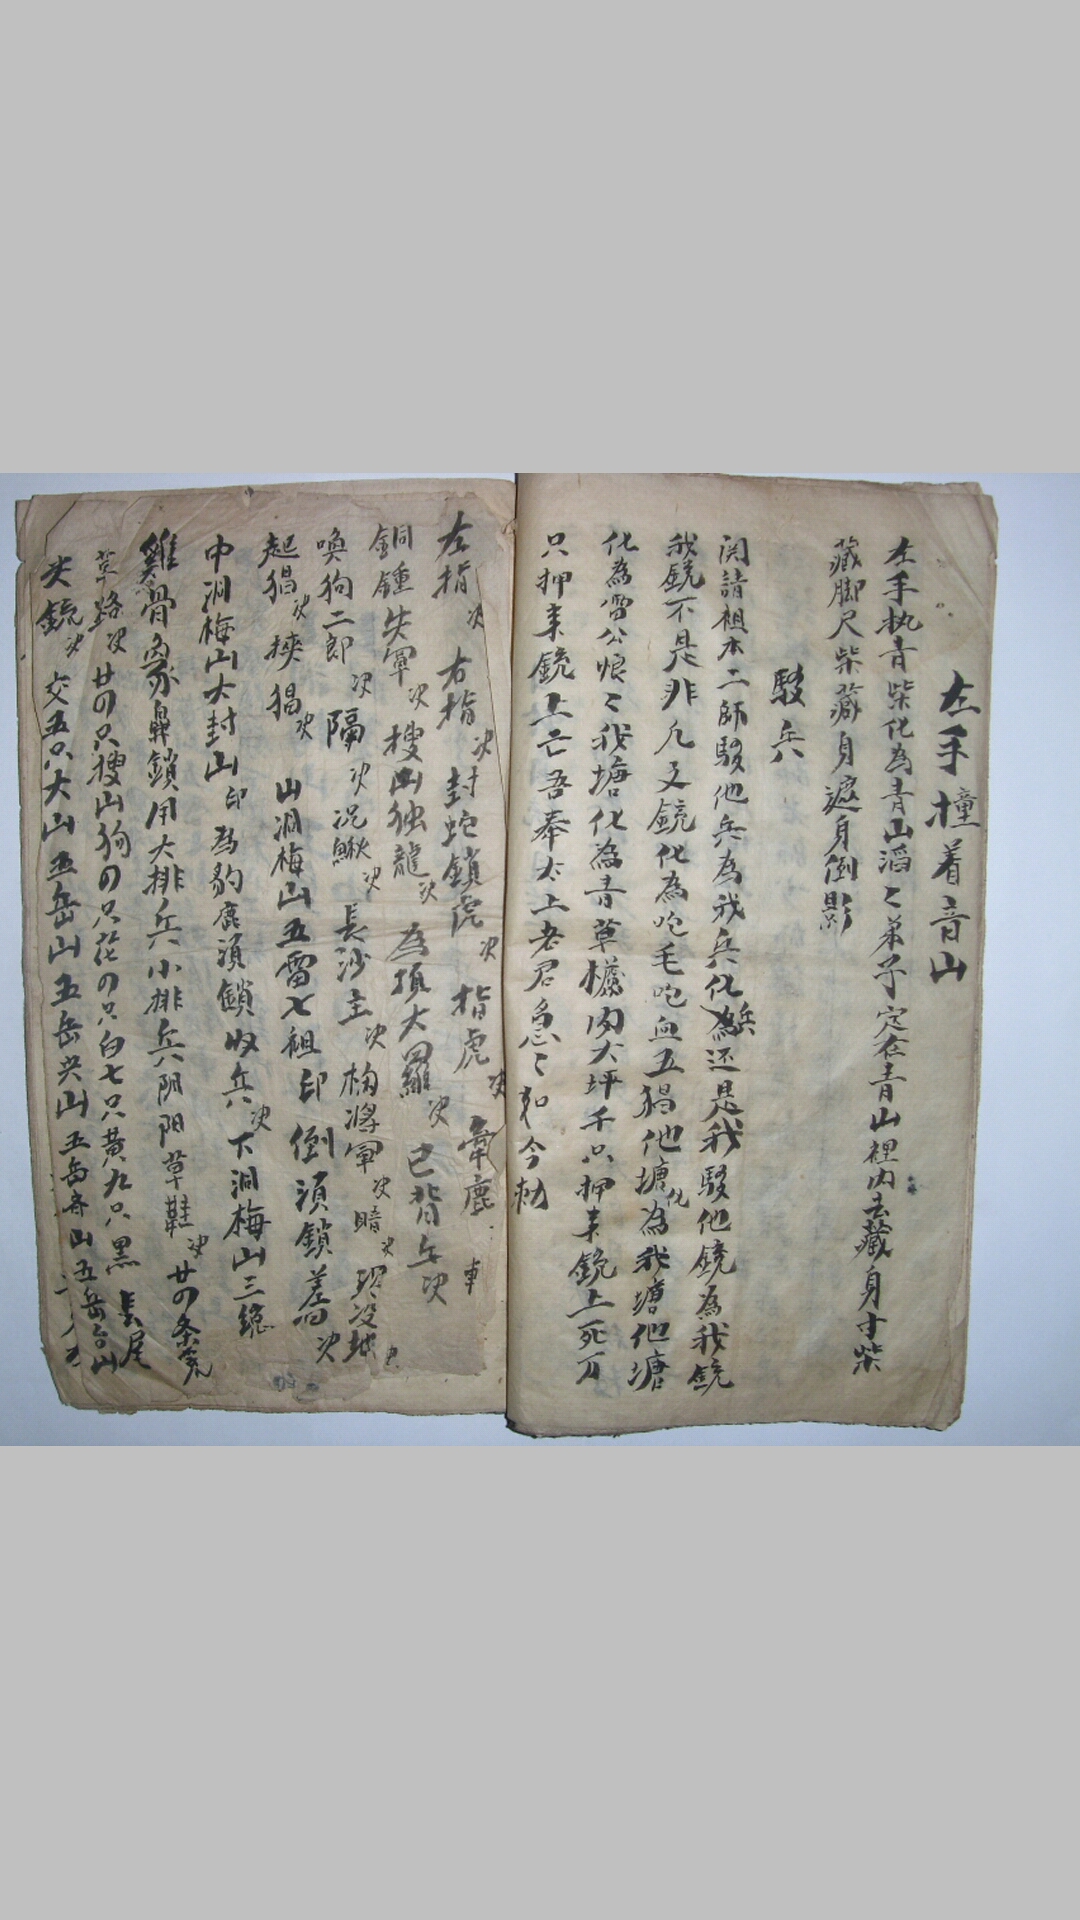 左手撞着音山
左手执青柴化為青山滔〻弟子定在青山裡内去藏身寸柴
藏脚尺柴藏身遮身倒影
駁兵
関請祖本二師駁他兵為我兵化兵為还是我駁他鏡為我銃
我鏡不是非凡又鏡化為咆毛咆血五猖他塘化為我塘他塘
化為雷公娘〻我塘化為青草欓内大坪千只押来銃上死万
只押来銃上亡吾奉太上老君急〻如令勅
左指次 右指次 封蛇鎖虎次 指虎次 牽鹿 車
銅鍾失軍次 搜山独龍次 為頂大羅次 已背兵次
喚狗二郎次 隔次 況鰍次 長沙主次 桷將軍次 暗次 
起猖次 挾猖次 山洞梅山五雷七祖印 倒湏鎖 次
中洞梅山大封山印 為豹鹿湏鎖收兵次 下洞梅山三
雞骨象鼻鎖用大排兵小排兵阴阳草鞋次 廿四条
草路次 廿四只搜山狗四只花四只白七只黄九只黑 長尾
銃次 交五只大山五岳山五岳尖山五岳 山五岳台山